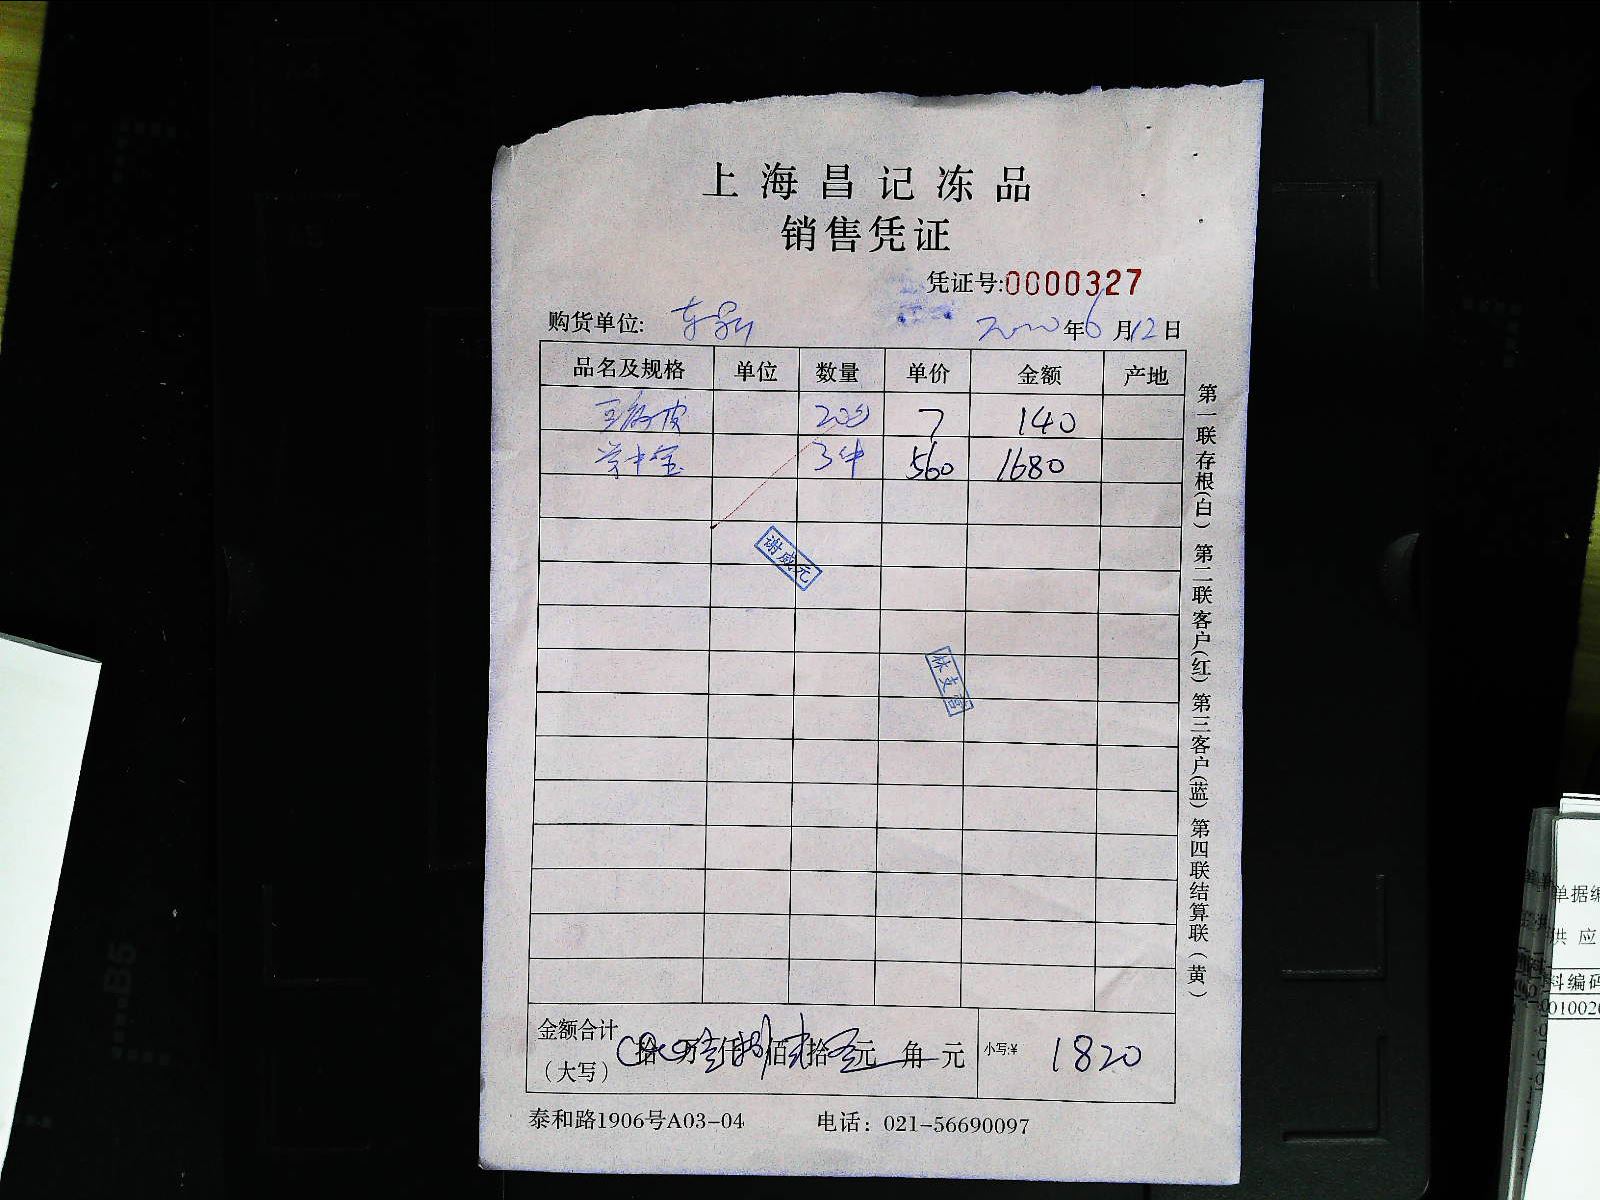 上海昌记冻品
销售凭证
凭证号:0000327
购货单位:
年6月12日
品名及规格 单位 数量 单价 金额 产地
7 140
3件 560 1680
谢威元
林支营
金额合计
(大写) 拾 万 仟 佰 拾 元 角 元 小写:¥ 1820
泰和路1906号A03-04 电话：021-56690097
第一联存根(白) 第二联客户(红) 第三客户(蓝) 第四联结算联(黄)
B5
单据编
供应
料编码